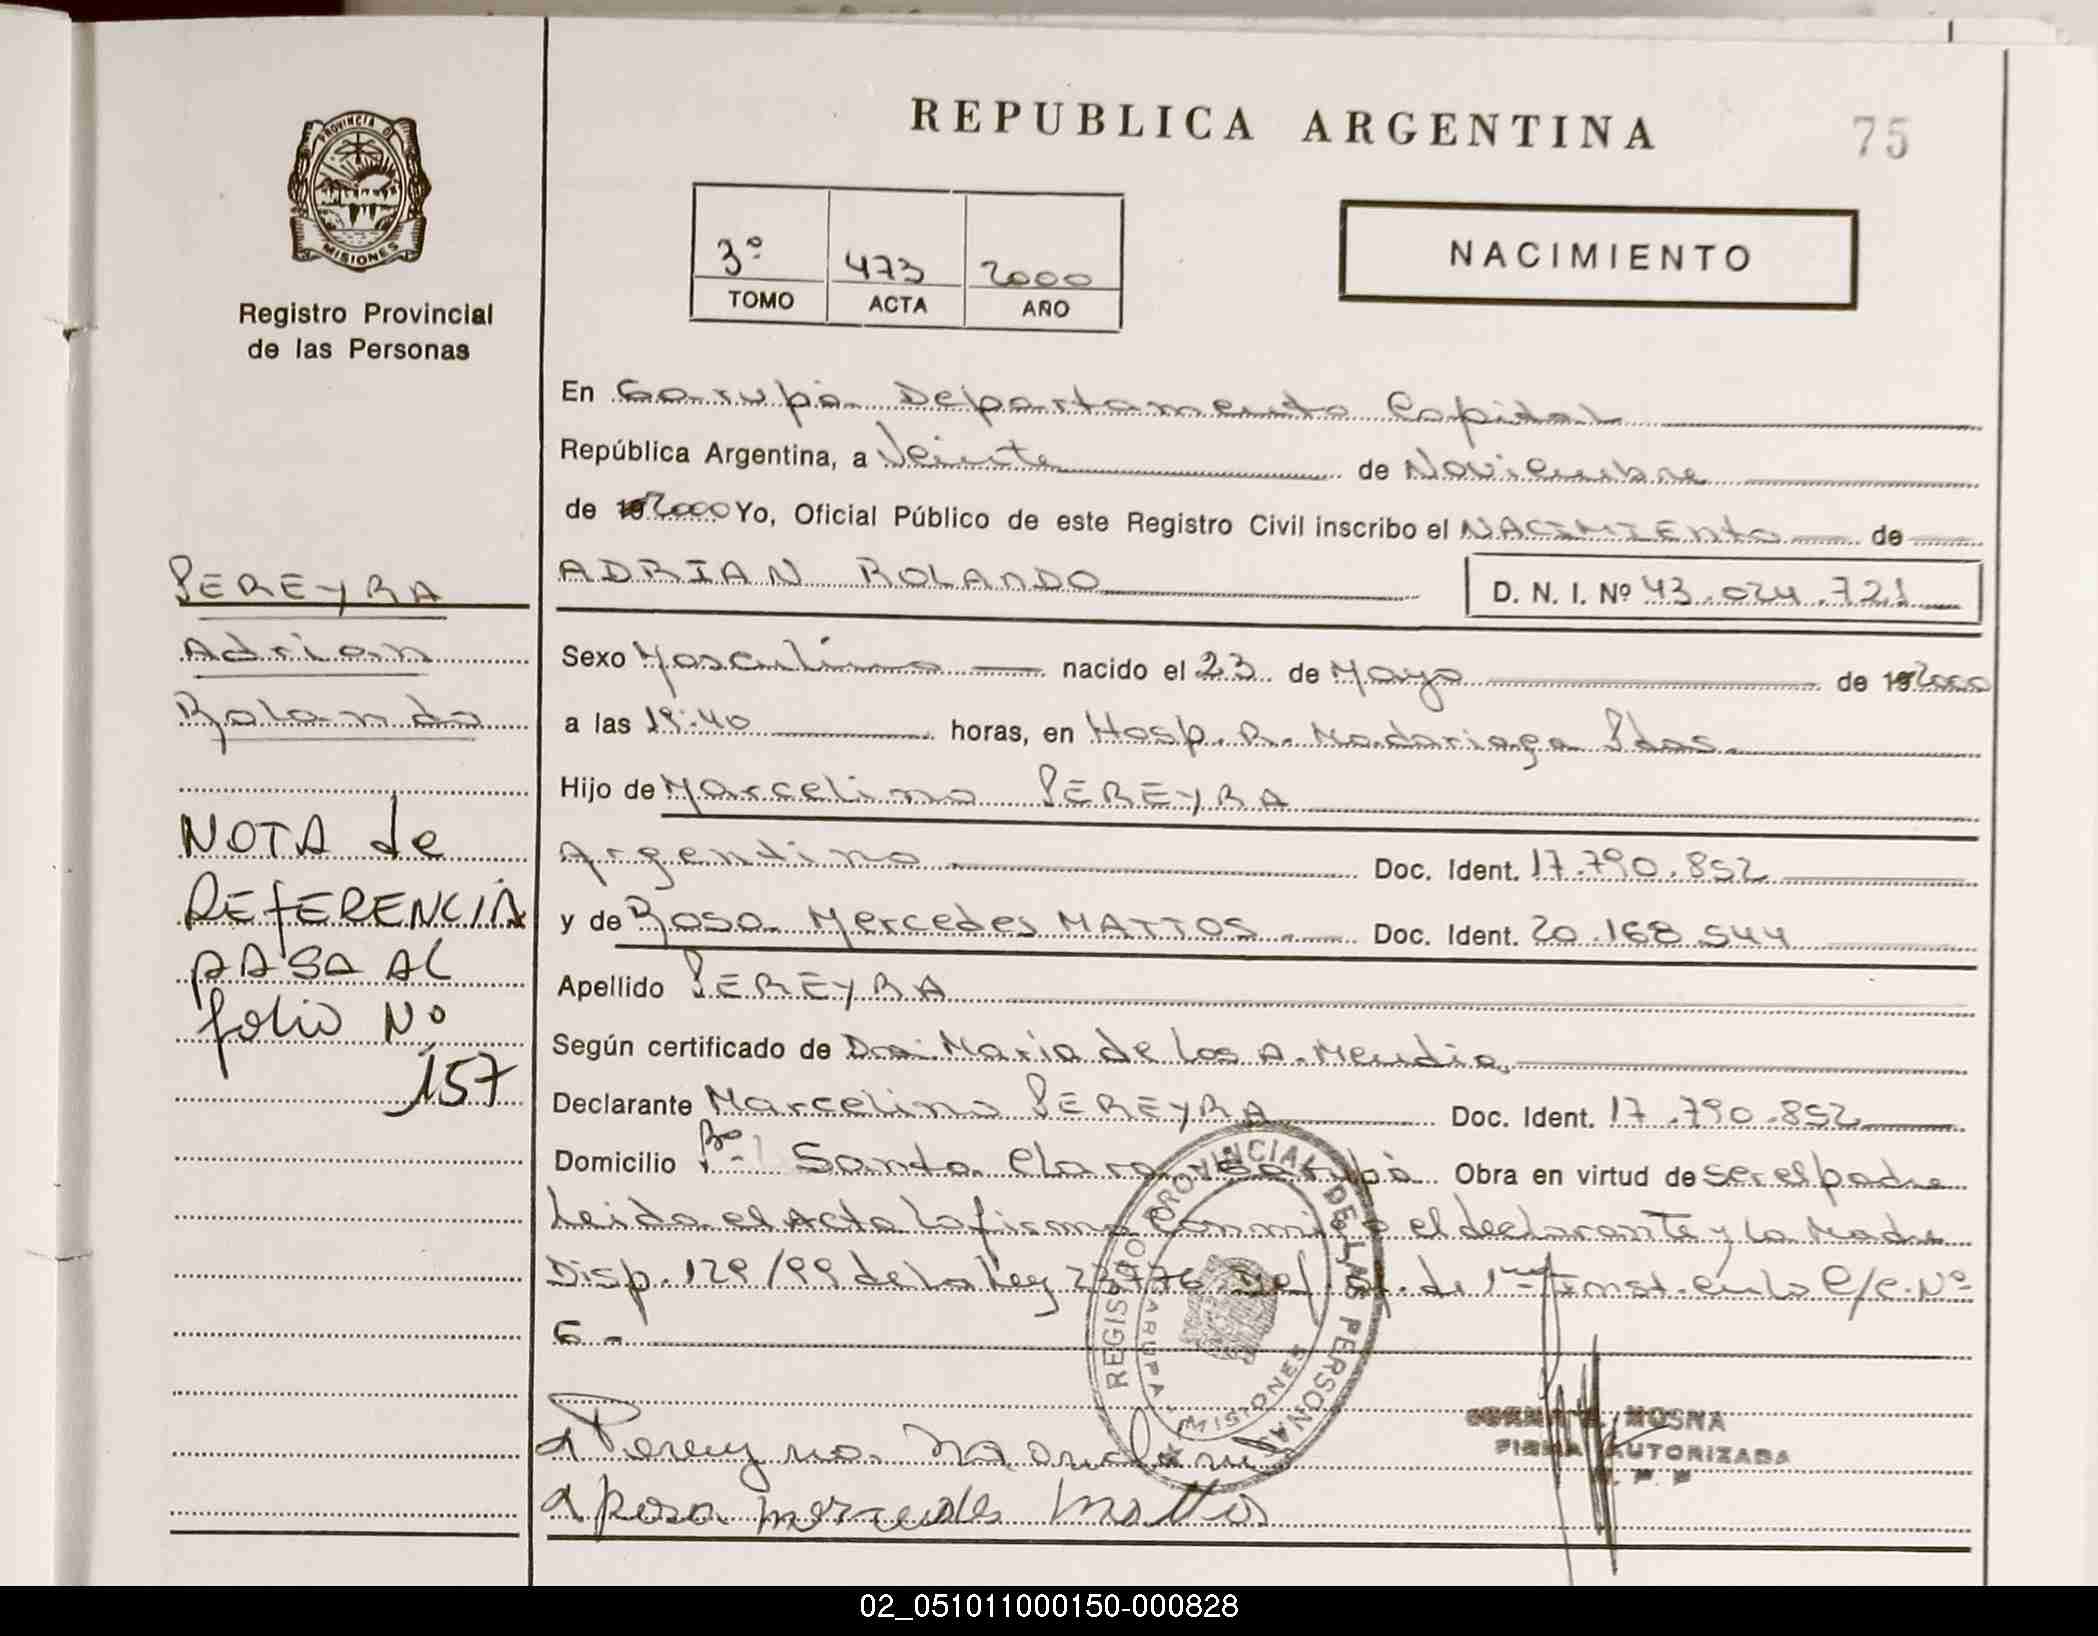 REPUBLICA ARGENTINA
75
PROVINCIA D
MISIONES
Registro Provincial
de las Personas
3º 473 2000
TOMO ACTA AÑO
NACIMIENTO
En Garupá Departamento Capital
República Argentina, a Veinte de Noviembre
de 192000 Yo, Oficial Público de este Registro Civil inscribo el NACIMIENto de
ADRIAN ROLANDO
D. N. I. Nº 43.024.721
PEREYRA
Adrian
Rolando
Sexo Masculino nacido el 23 de Mayo de 192000
a las 19:40 horas, en Hosp. R. Madariaga Pdas.
Hijo de Marcelino PEREYRA
Argentino Doc. Ident. 17.790.852
y de Rosa Mercedes MATTOS Doc. Ident. 20.168.544
Apellido PEREYRA
Según certificado de Dra. María de los A. Mendia
Declarante Marcelino PEREYRA Doc. Ident. 17.790.852
Domicilio Bº Santa Clara Garupá Obra en virtud de ser el padre
Leida el Acta la firma conmigo el declarante y la Madre
Disp. 129/99 de la Ley 23776 Def. Of. de 1ra Inst. en lo C/C. Nº
6 -
NOTA de
REfERENCIA
PASA AL
folio Nº
157
REGISTRO PROVINCIAL DE LAS PERSONAS
GARUPA - MISIONES
Pereyra Marcelino
Rosa Mercedes Mattos
MOSNA
FIRMA AUTORIZADA
02_051011000150-000828